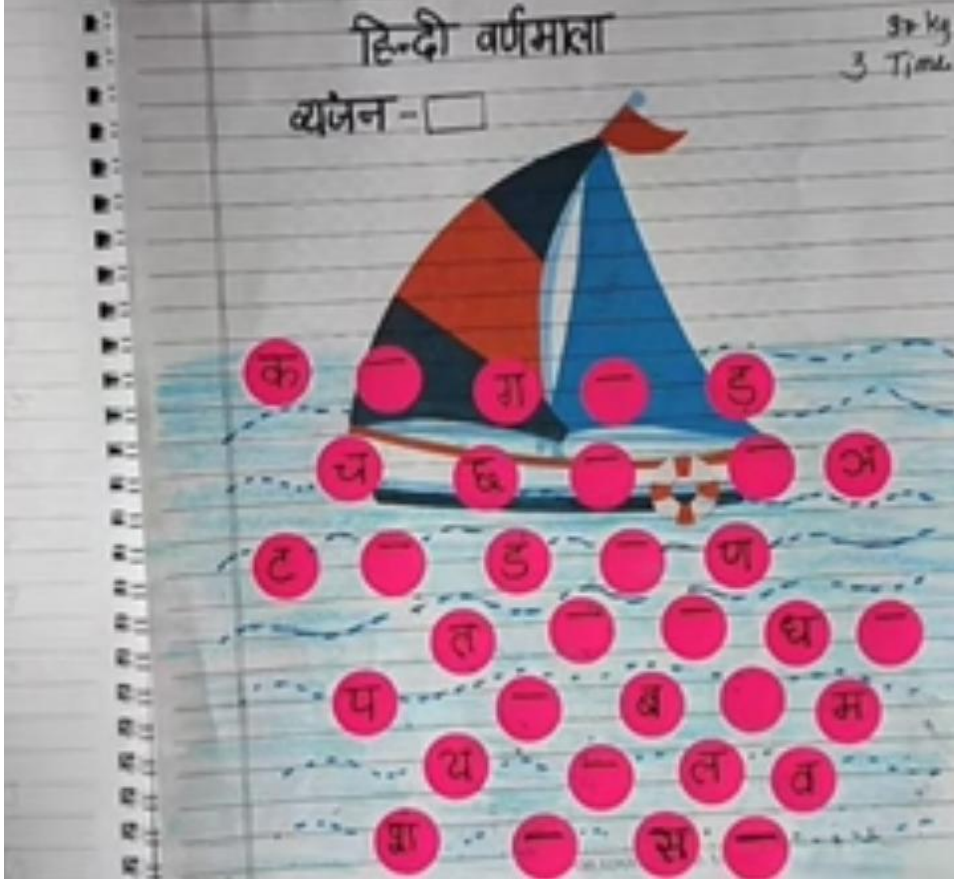 हिन्दी वर्णमाला
3 Time
व्यंजन -
क _ ग _ ङ
च छ _ _ ञ
ट _ ड _ ण
त _ _ ध _
प _ ब म
य _ ल व
श _ स _